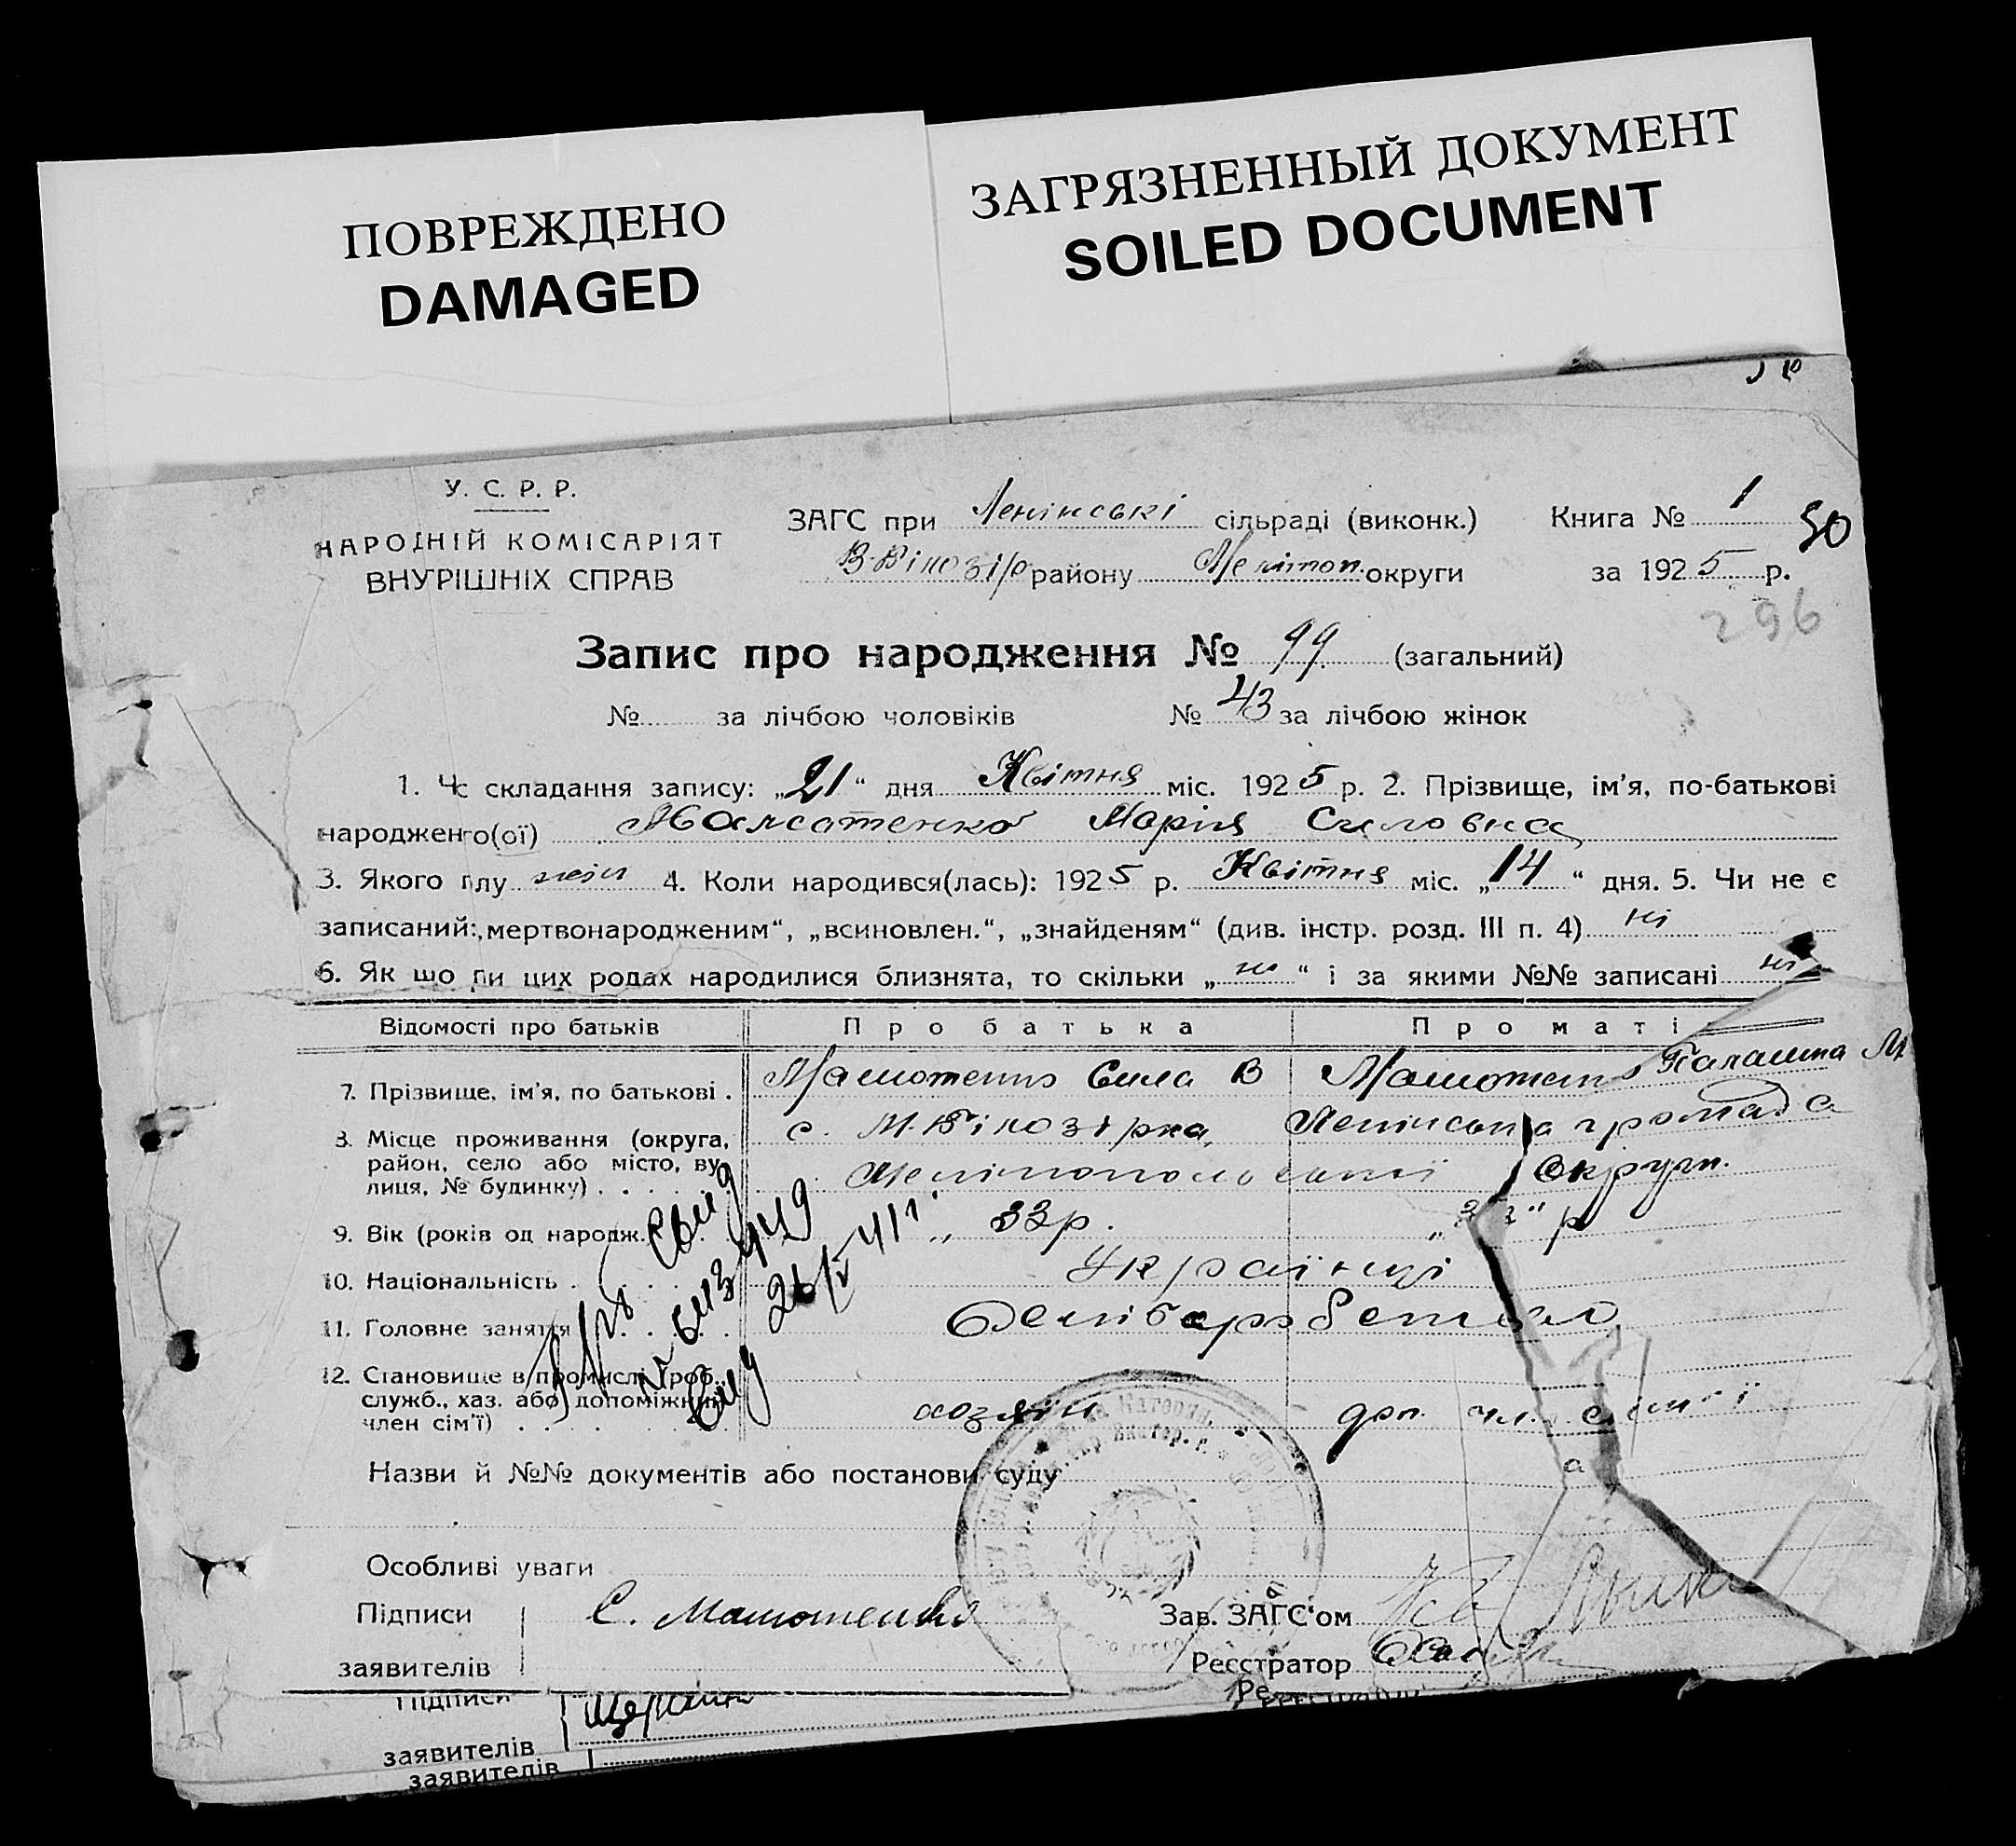 ПОВРЕЖДЕНО
DAMAGED
ЗАГРЯЗНЕННЫЙ ДОКУМЕНТ
SOILED DOCUMENT
У. С. Р. Р.
НАРОДНІЙ КОМІСАРІЯТ
ВНУРІШНІХ СПРАВ
ЗАГС при Ленінські сільраді (виконк.)
В-Білозір району Мелітоп. округи
Книга № 1
50
за 1925 р.
296
Запис про народження № 99 (загальний)
№ за лічбою чоловіків № 43 за лічбою жінок
1. Чс складання запису: „21“ дня Квітня міс. 1925 р. 2. Прізвище, ім’я, по-батькові
народженго(ої) Марія Силовна
3. Якого плу жін 4. Коли народився(лась): 1925 р. Квітня міс. „14“ дня. 5. Чи не є
записаний: „мертвонародженим“, „всиновлен.“, „знайденям“ (див. інстр. розд. III п. 4) ні
6. Як що пи цих родах народилися близнята, то скільки „ні“ і за якими №№ записані ні
Відомості про батьків Про батька Про матір
7. Прізвище, ім’я, по батькові . Мамотенко Сила В Мамотенко Палашка М
8. Місце проживання (округа, с. М. Білозірка, Ленінська громада
район, село або місто, ву- Мелітопольської Округи.
лиця, № будинку) . .
9. Вік (років од народж. „ 33р. р
10. Національність . Українці
11. Головне заняття Хліборобство
12. Становище в промислі (роб.,
служб., хаз. або допоміжний хозяїн доп. чл. сім'ї
член сім’ї) . . .
Назви й №№ документів або постанови суду
Особливі уваги
Підписи С. Мамотенко Зав. ЗАГС‘ом
заявителів Реєстратор
Підписи
заявителів
заявителів